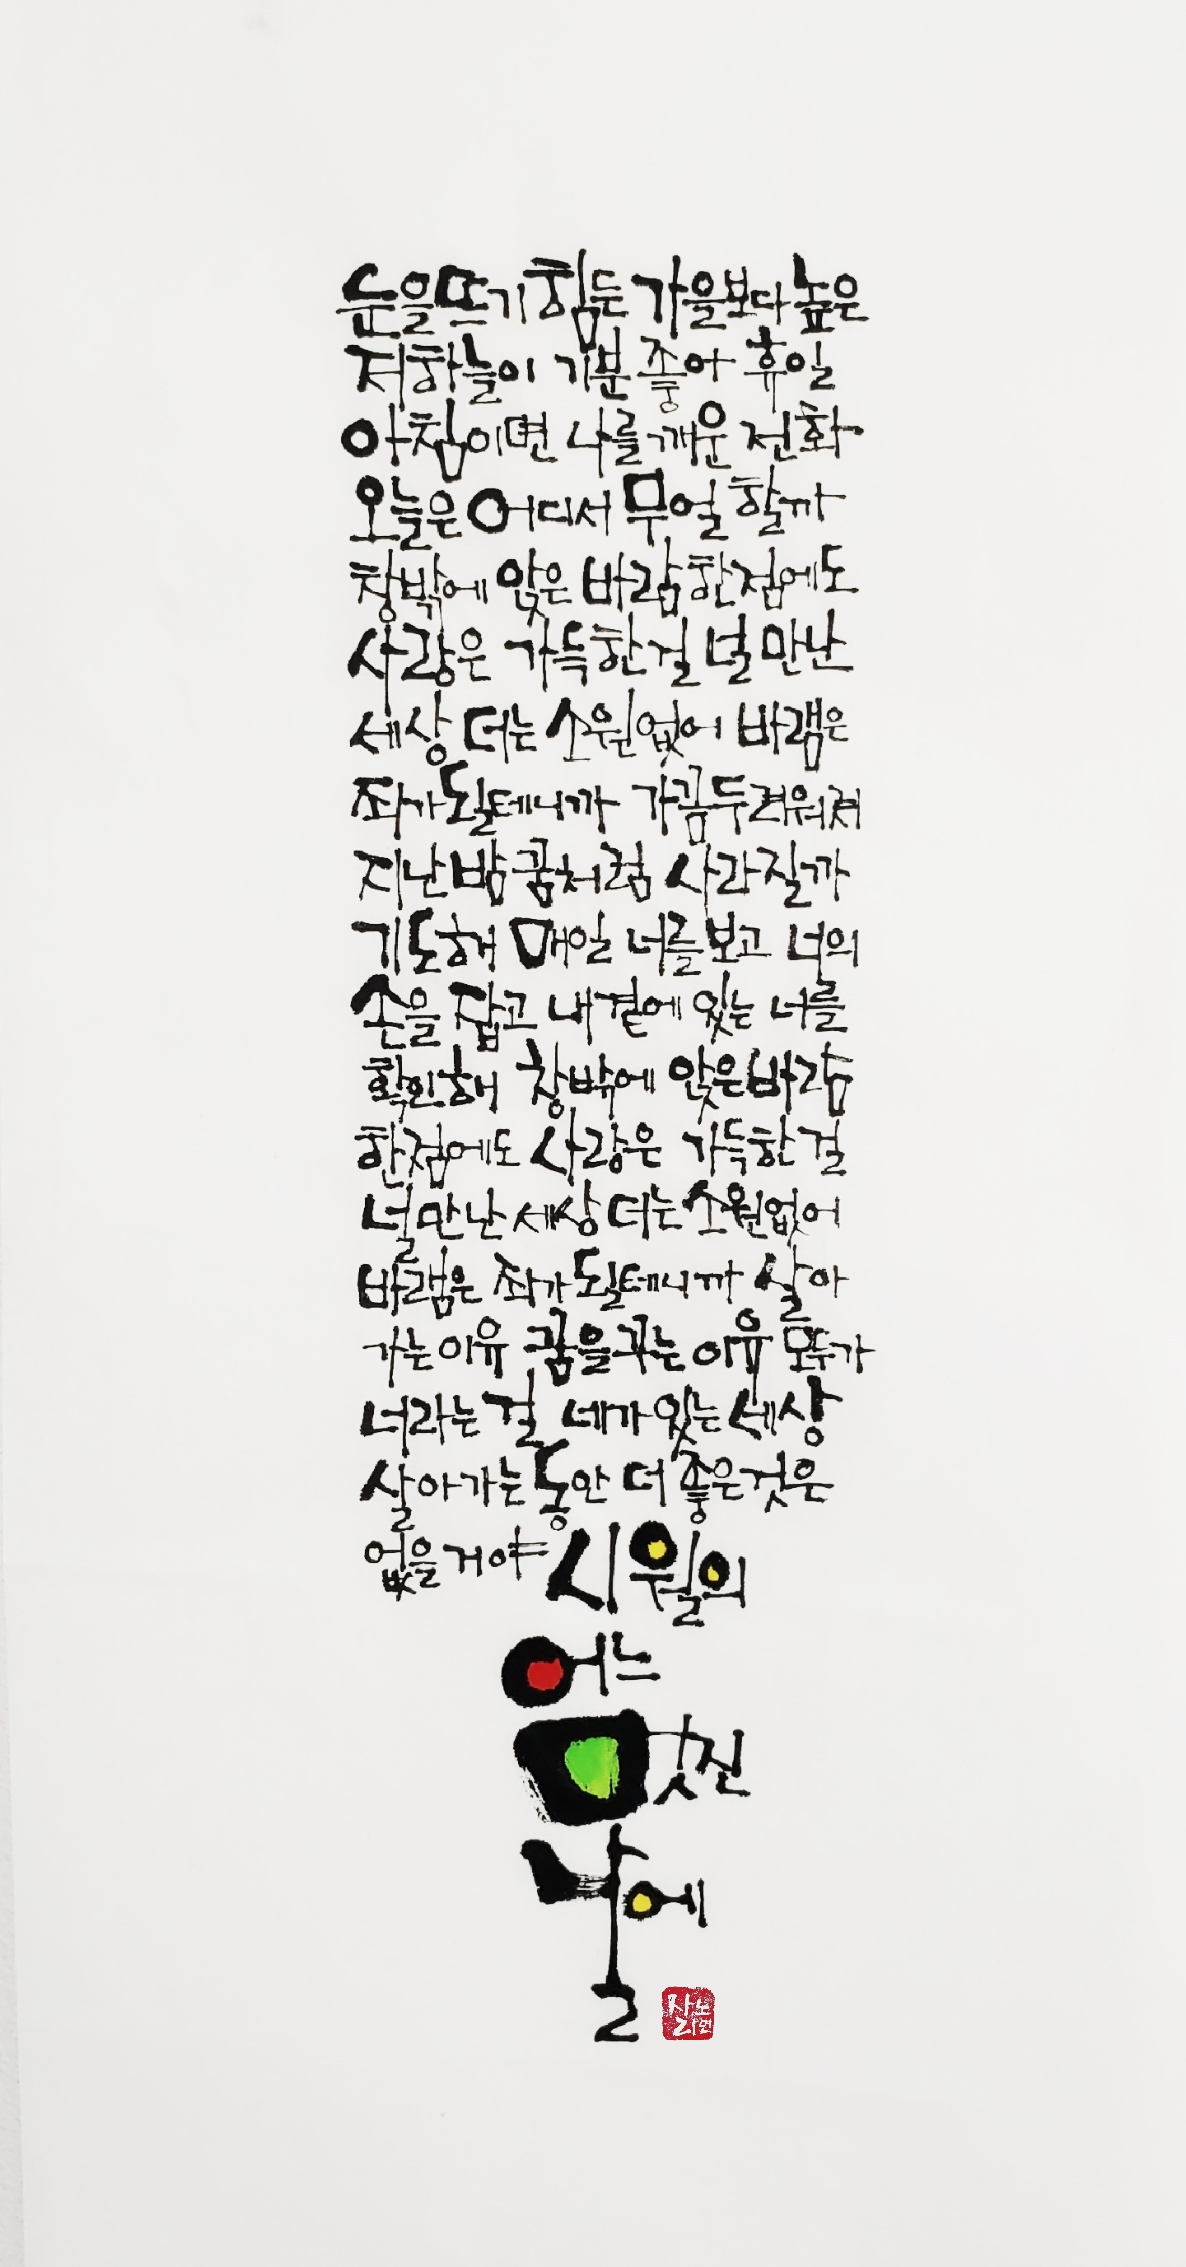 눈을뜨기 힘든 가을보다 높은
저하늘이 기분 좋아 휴일
아침이면 나를 깨운 전화
오늘은 어디서 무얼 할까
창밖에 앉은 바람한점에도
사랑은 가득한걸 널 만난
세상 더는 소원없어 바램은
죄가될테니까 가끔두려워져
지난밤 꿈처럼 사라질까
기도해 매일 너를보고 너의
손을 잡고 내곁에 있는 너를
확인해 창밖에 앉은바람
한점에도 사랑은 가득한걸
널만난세상 더는소원없어
바램은 죄가될테니까 살아
가는이유 꿈을꾸는 이유 모두가
너라는걸 네가있는세상
살아가는동안 더 좋은것은
없을거야 시월의
어느
멋진
날에